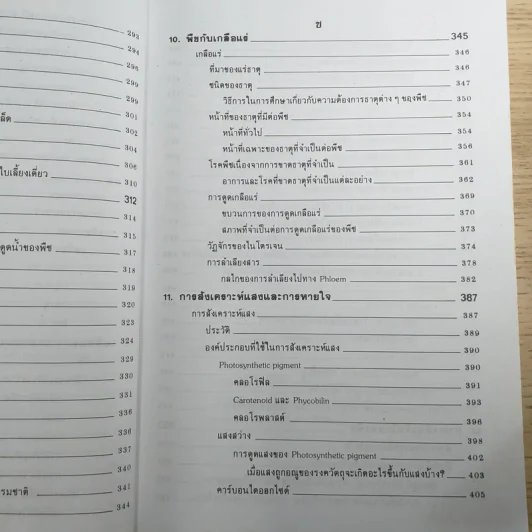 293
294
296
299
299
301
ล็ด
302
304
306
ใบเลี้ยงเดี่ยว
310
312
314
315
ดูดน้ำของพืช 317
318
319
320
323
324
329
330
331
336
336
337
340
รมชาติ 341
344
ซ
10. พืชกับเกลือแร่ 345
เกลือแร่ 346
ที่มาของแร่ธาตุ 346
ชนิดของธาตุ 347
วิธีการในการศึกษาเกี่ยวกับความต้องการธาตุต่าง ๆ ของพืช 350
หน้าที่ของธาตุที่มีต่อพืช 354
หน้าที่ทั่วไป 354
หน้าที่เฉพาะของธาตุที่จำเป็นต่อพืช 356
โรคพืชเนื่องจากการขาดธาตุที่จำเป็น 361
อาการและโรคที่ขาดธาตุที่จำเป็นแต่ละอย่าง 362
การดูดเกลือแร่ 369
ขบวนการของการดูดเกลือแร่ 370
สภาพที่จำเป็นต่อการดูดเกลือแร่ของพืช 373
วัฏจักรของไนโตรเจน 374
การลำเลียงสาร 378
กลไกของการลำเลียงไปทาง Phloem 382
11. การสังเคราะห์แสงและการหายใจ 387
การสังเคราะห์แสง 387
ประวัติ 389
องค์ประกอบที่ใช้ในการสังเคราะห์แสง 390
Photosynthetic pigment 390
คลอโรฟิล 391
Carotenoid และ Phycobilin 393
คลอโรพลาสต์ 396
แสงสว่าง 398
การดูดแสงของ Photosynthetic pigment 402
เมื่อแสงถูกอณูของรงควัตถุจะเกิดอะไรขึ้นกับแสงบ้าง? 403
คาร์บอนไดออกไซด์ 405